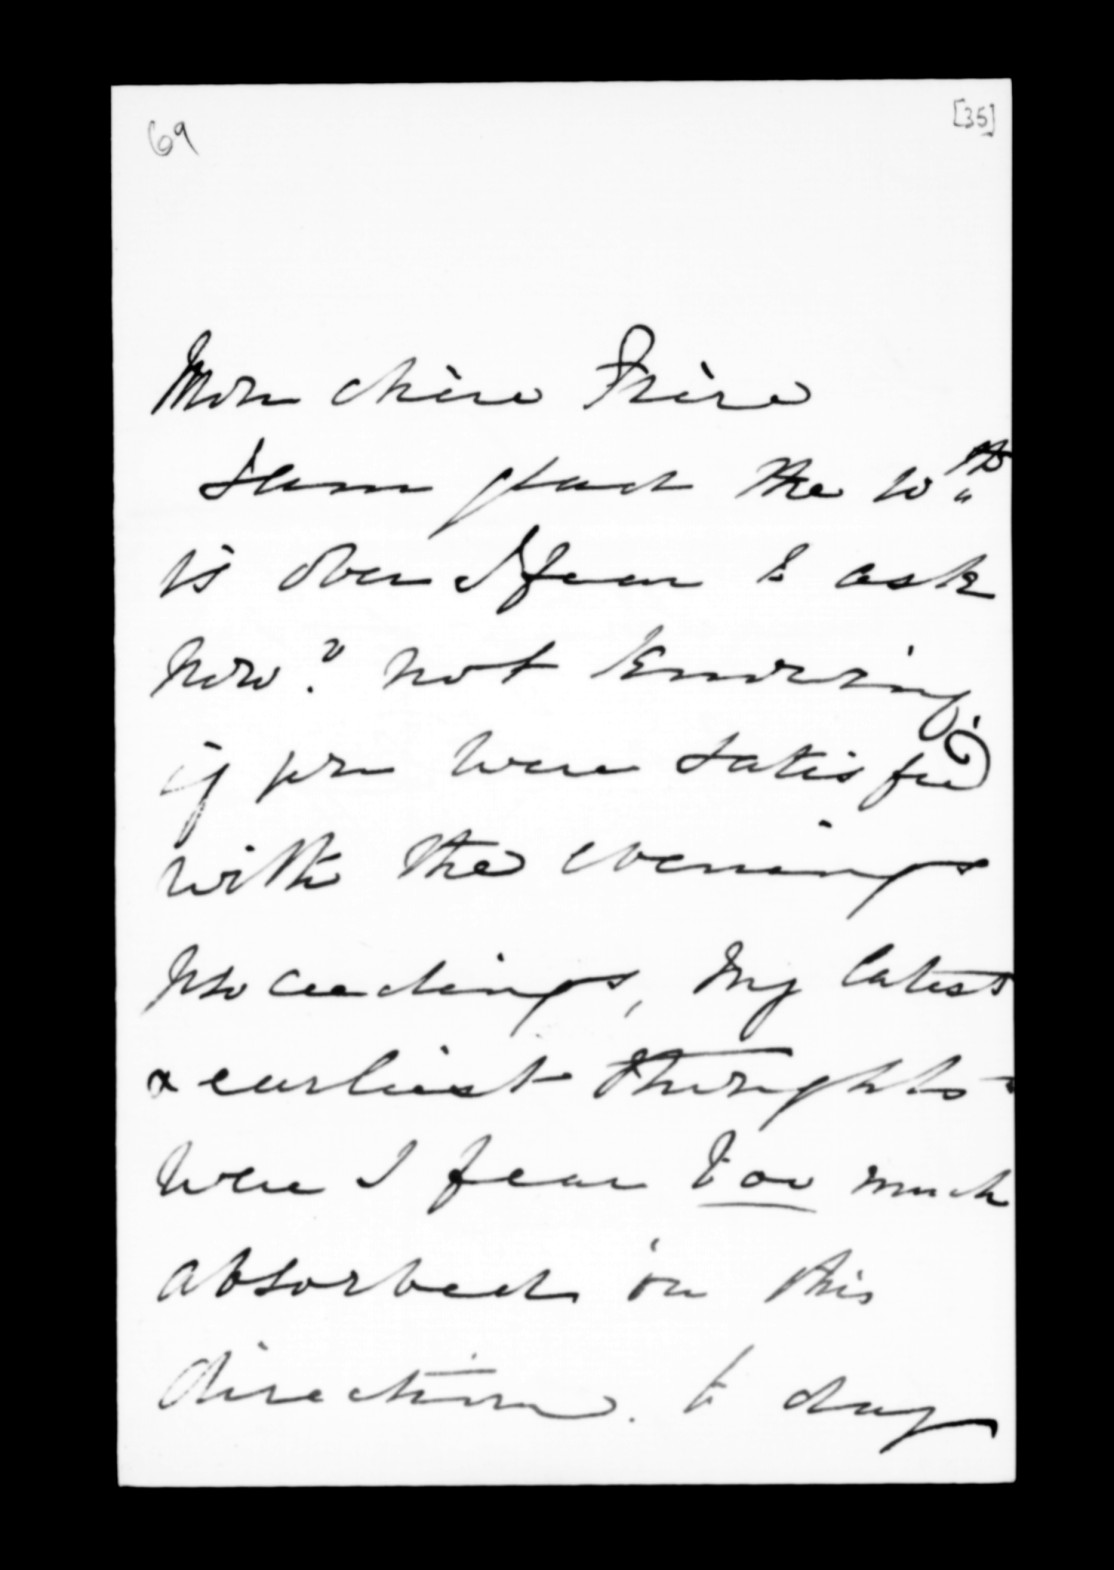 69
[35]
Mon chère Frère
I am glad the 10th
is over I fear to ask
how? not knowing
if you were satisfied
with the evenings
proceedings, My latest
& earliest thoughts
were I fear too much
absorbed in this
direction. to day